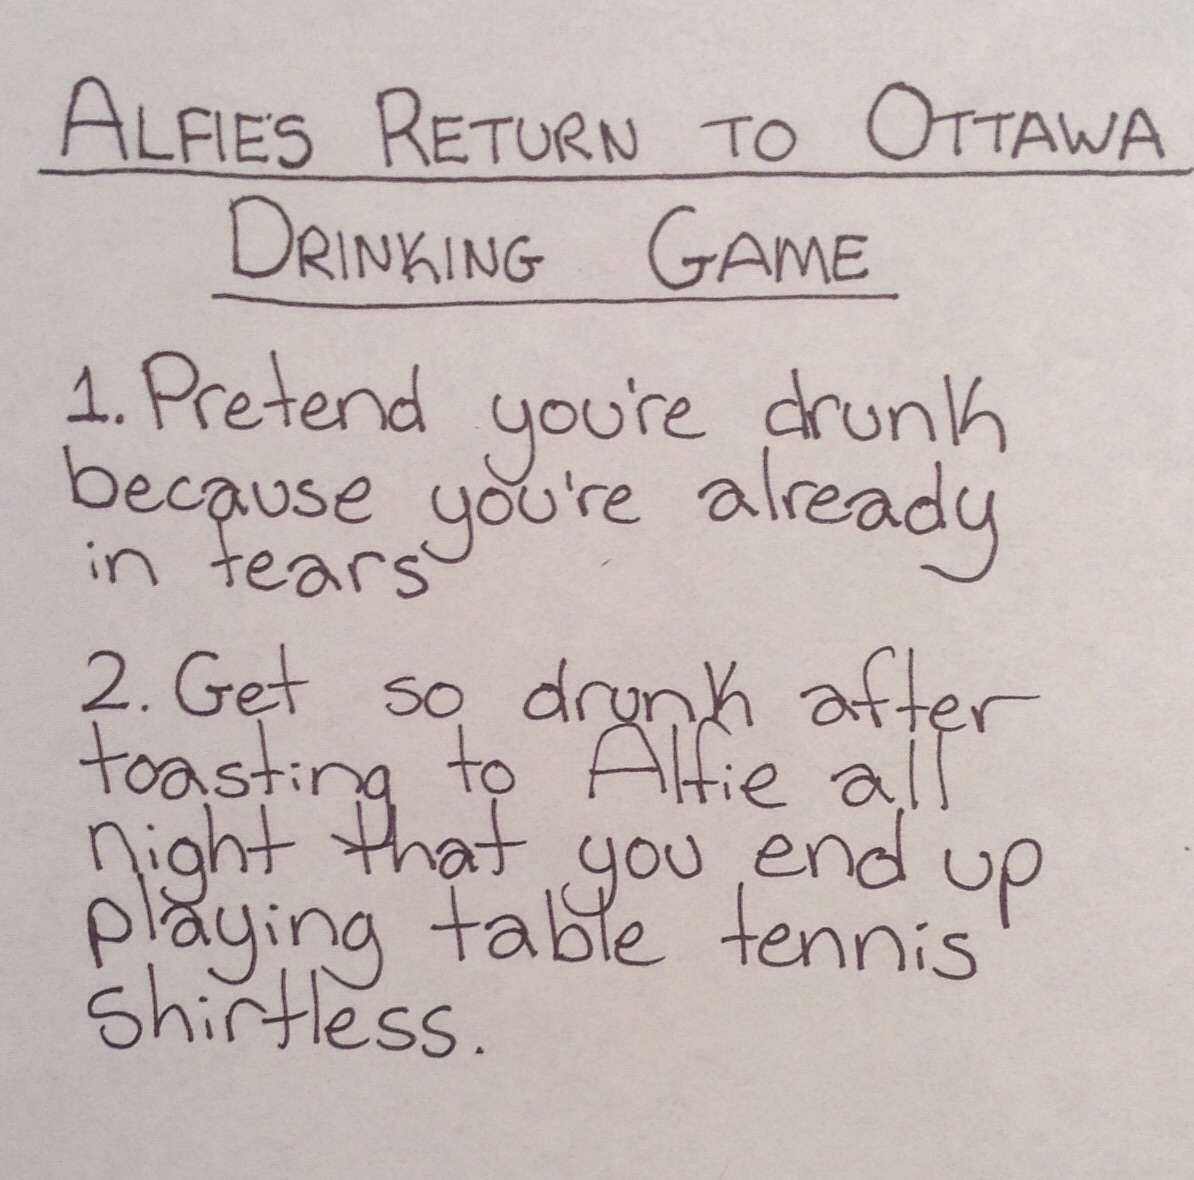 ALFIE'S RETURN TO OTTAWA
DRINKING GAME
1. Pretend you're drunk
because you're already
in tears
2. Get so drunk after
toasting to Alfie all
night that you end up
playing table tennis
shirtless.